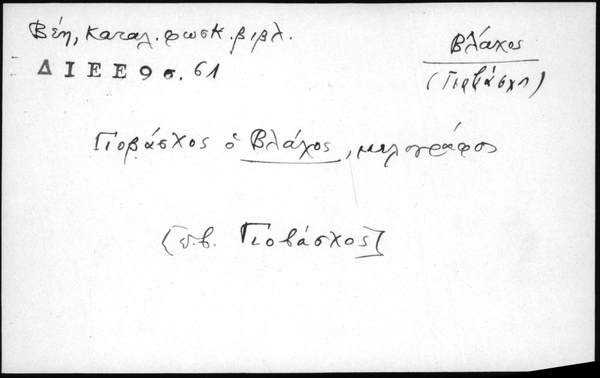 Βέη, Καταλ. φωσκ. βιβλ.
ΔΙΕΕ 9 σ. 61
Βλάχος
(Γιοβάσχη)
Γιοβάσχος ὁ Βλάχος, μελογράφος
[π.β. Γιοβάσχος]